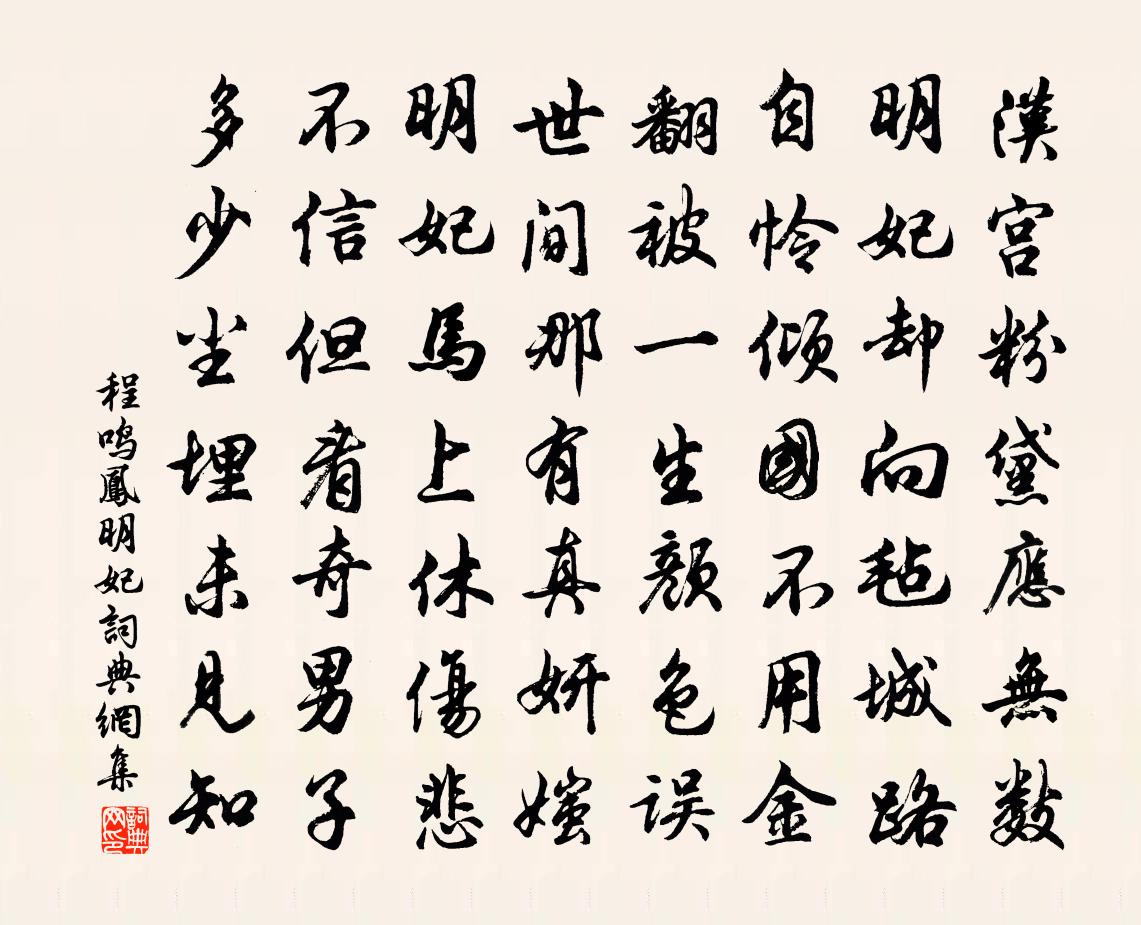 漢宫粉黛應無數
明妃却向毡城路
自怜傾國不用金
翻被一生颜色误
世间那有真妍媸
明妃馬上休傷悲
不信但看奇男子
多少尘埋未見知
程鸣鳳明妃詞典網集
詞典网印